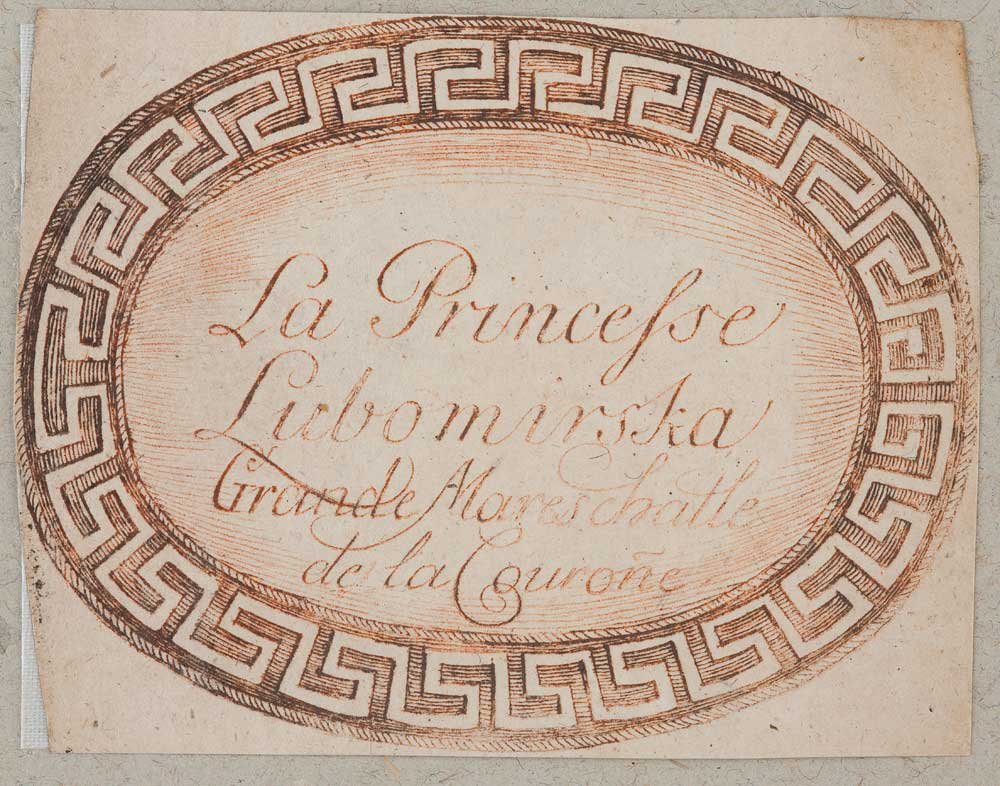 La Princeſse
Lubomirska
Grande Mareschalle
de la Couroñe